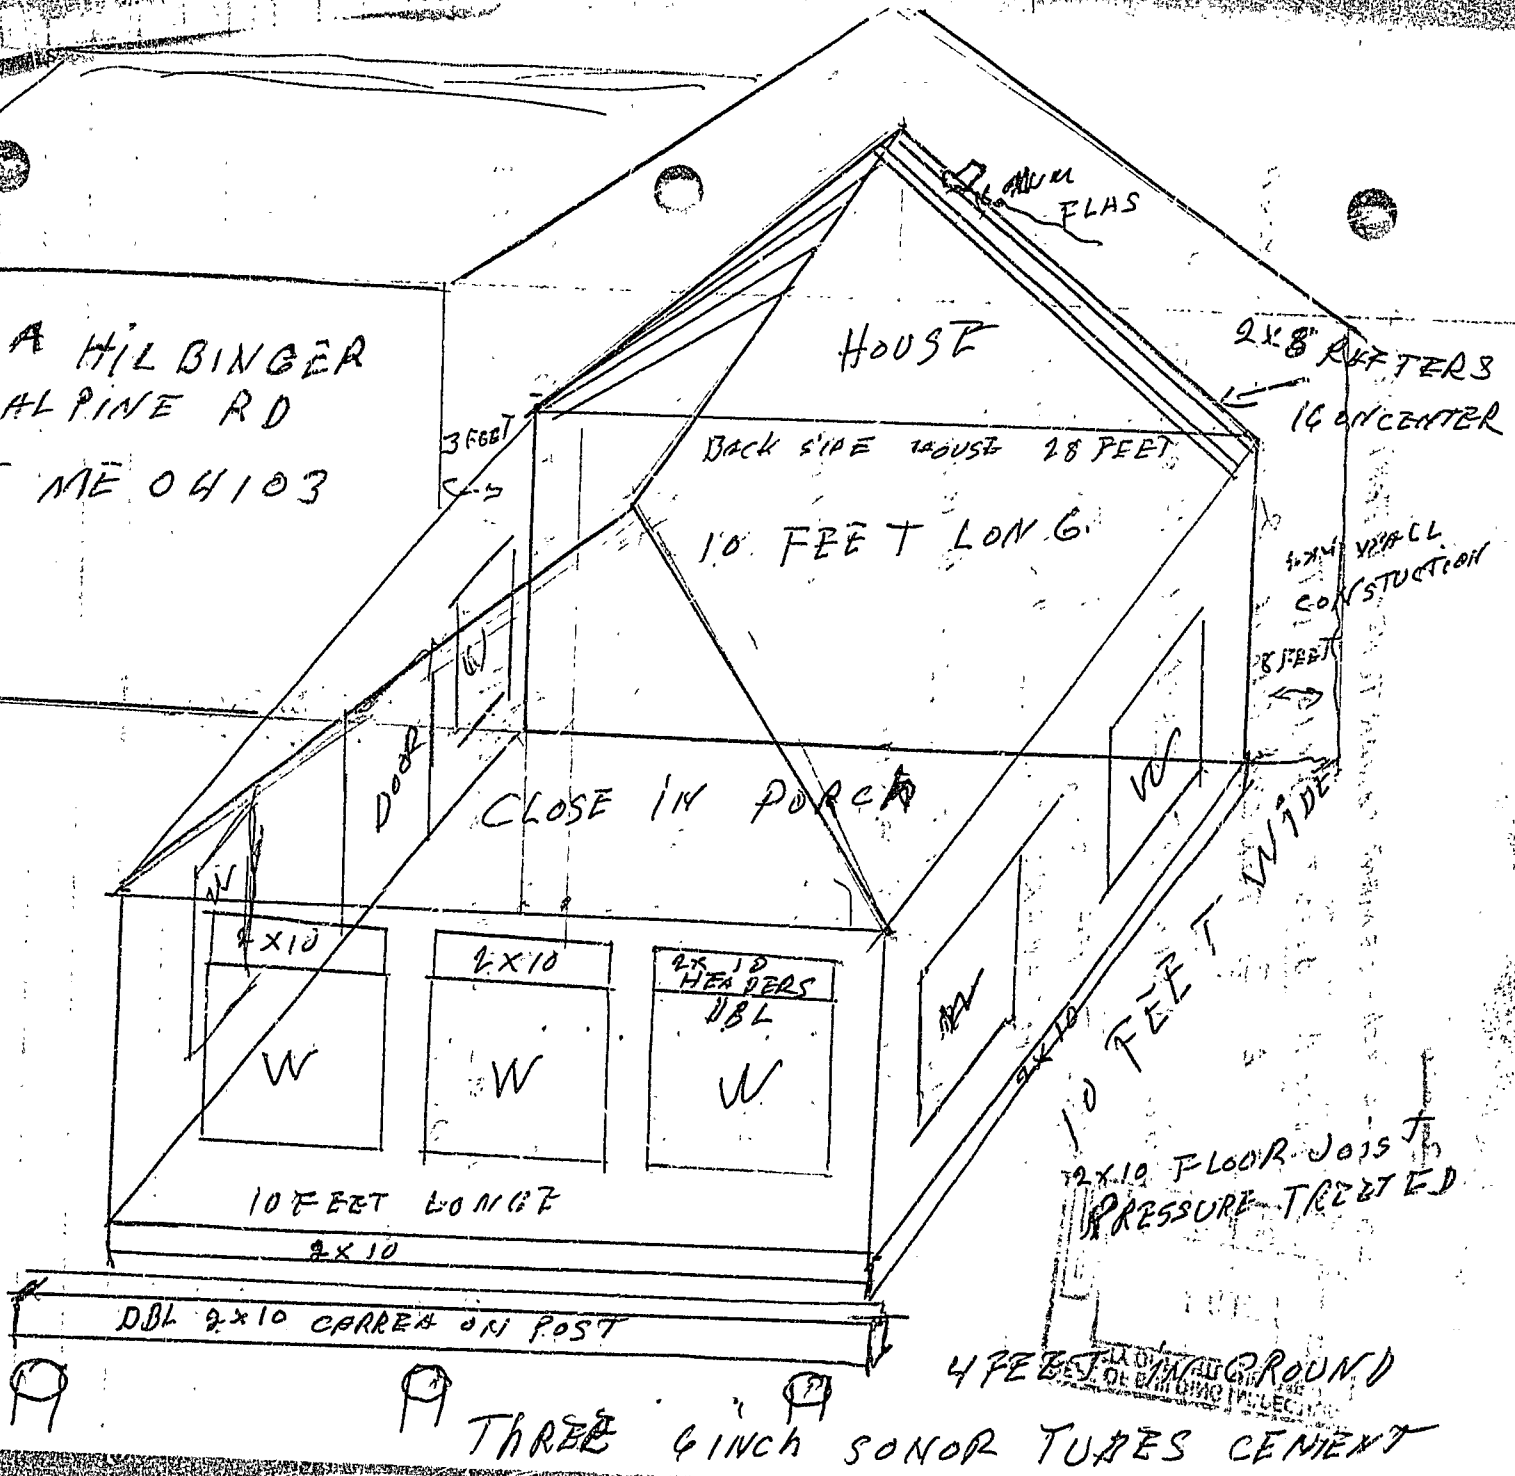 A HILBINGER
ALPINE RD
ME 04103
FLAS
HOUSE
2X8 RAFTERS
16 ONCENTER
3 FEET
BACK SIDE HOUSE 28 FEET
10 FEET LONG.
WALL
CONSTUCTION
8 FEET
W
DOOR
W
CLOSE IN PORCH
W
10 FEET WIDE
2X10
2X10
2X10
HEADERS
DBL
W
W
W
2X10
2X10 FLOOR JOIST
PRESSURE TREETED
10 FEET LONGE
2X10
DBL 2X10 CARREA ON POST
4 FEET IN GROUND
THREE 6 INCH SONOR TUBES CEMENT